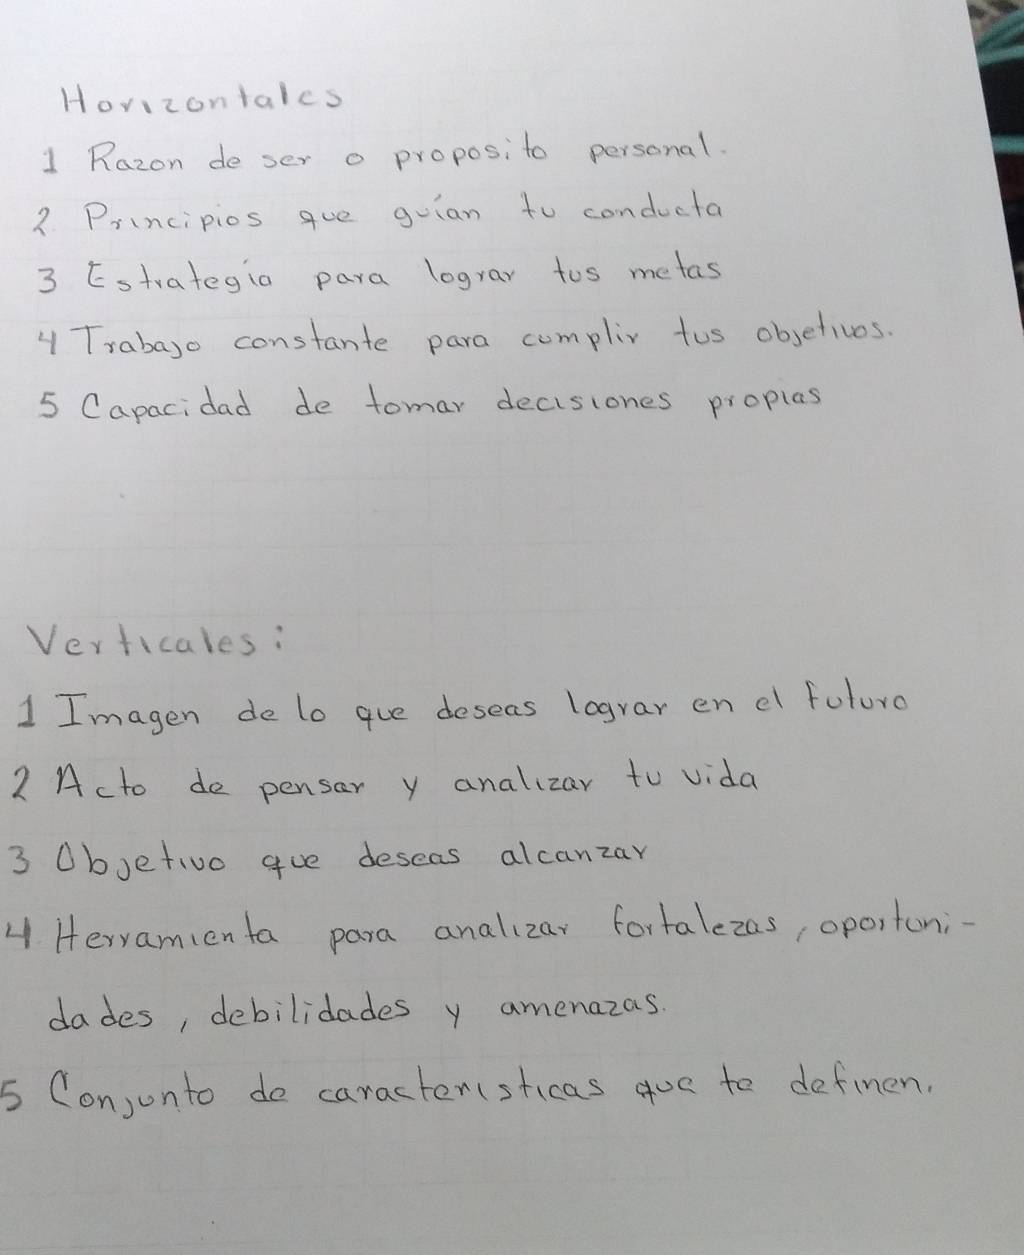 Horizontales
1 Razon de ser o proposito personal.
2 Principios que guían tu conducta
3 Estrategia para lograr tus metas
4 Trabajo constante para cumplir tus objetivos.
5 Capacidad de tomar decisiones propias
Verticales:
1 Imagen de lo que deseas lograr en el futuro
2 Acto de pensar y analizar tu vida
3 Objetivo que deseas alcanzar
4 Herramienta para analizar fortalezas, oportuni-
dades, debilidades y amenazas.
5 Conjunto de caracteristicas que te definen.